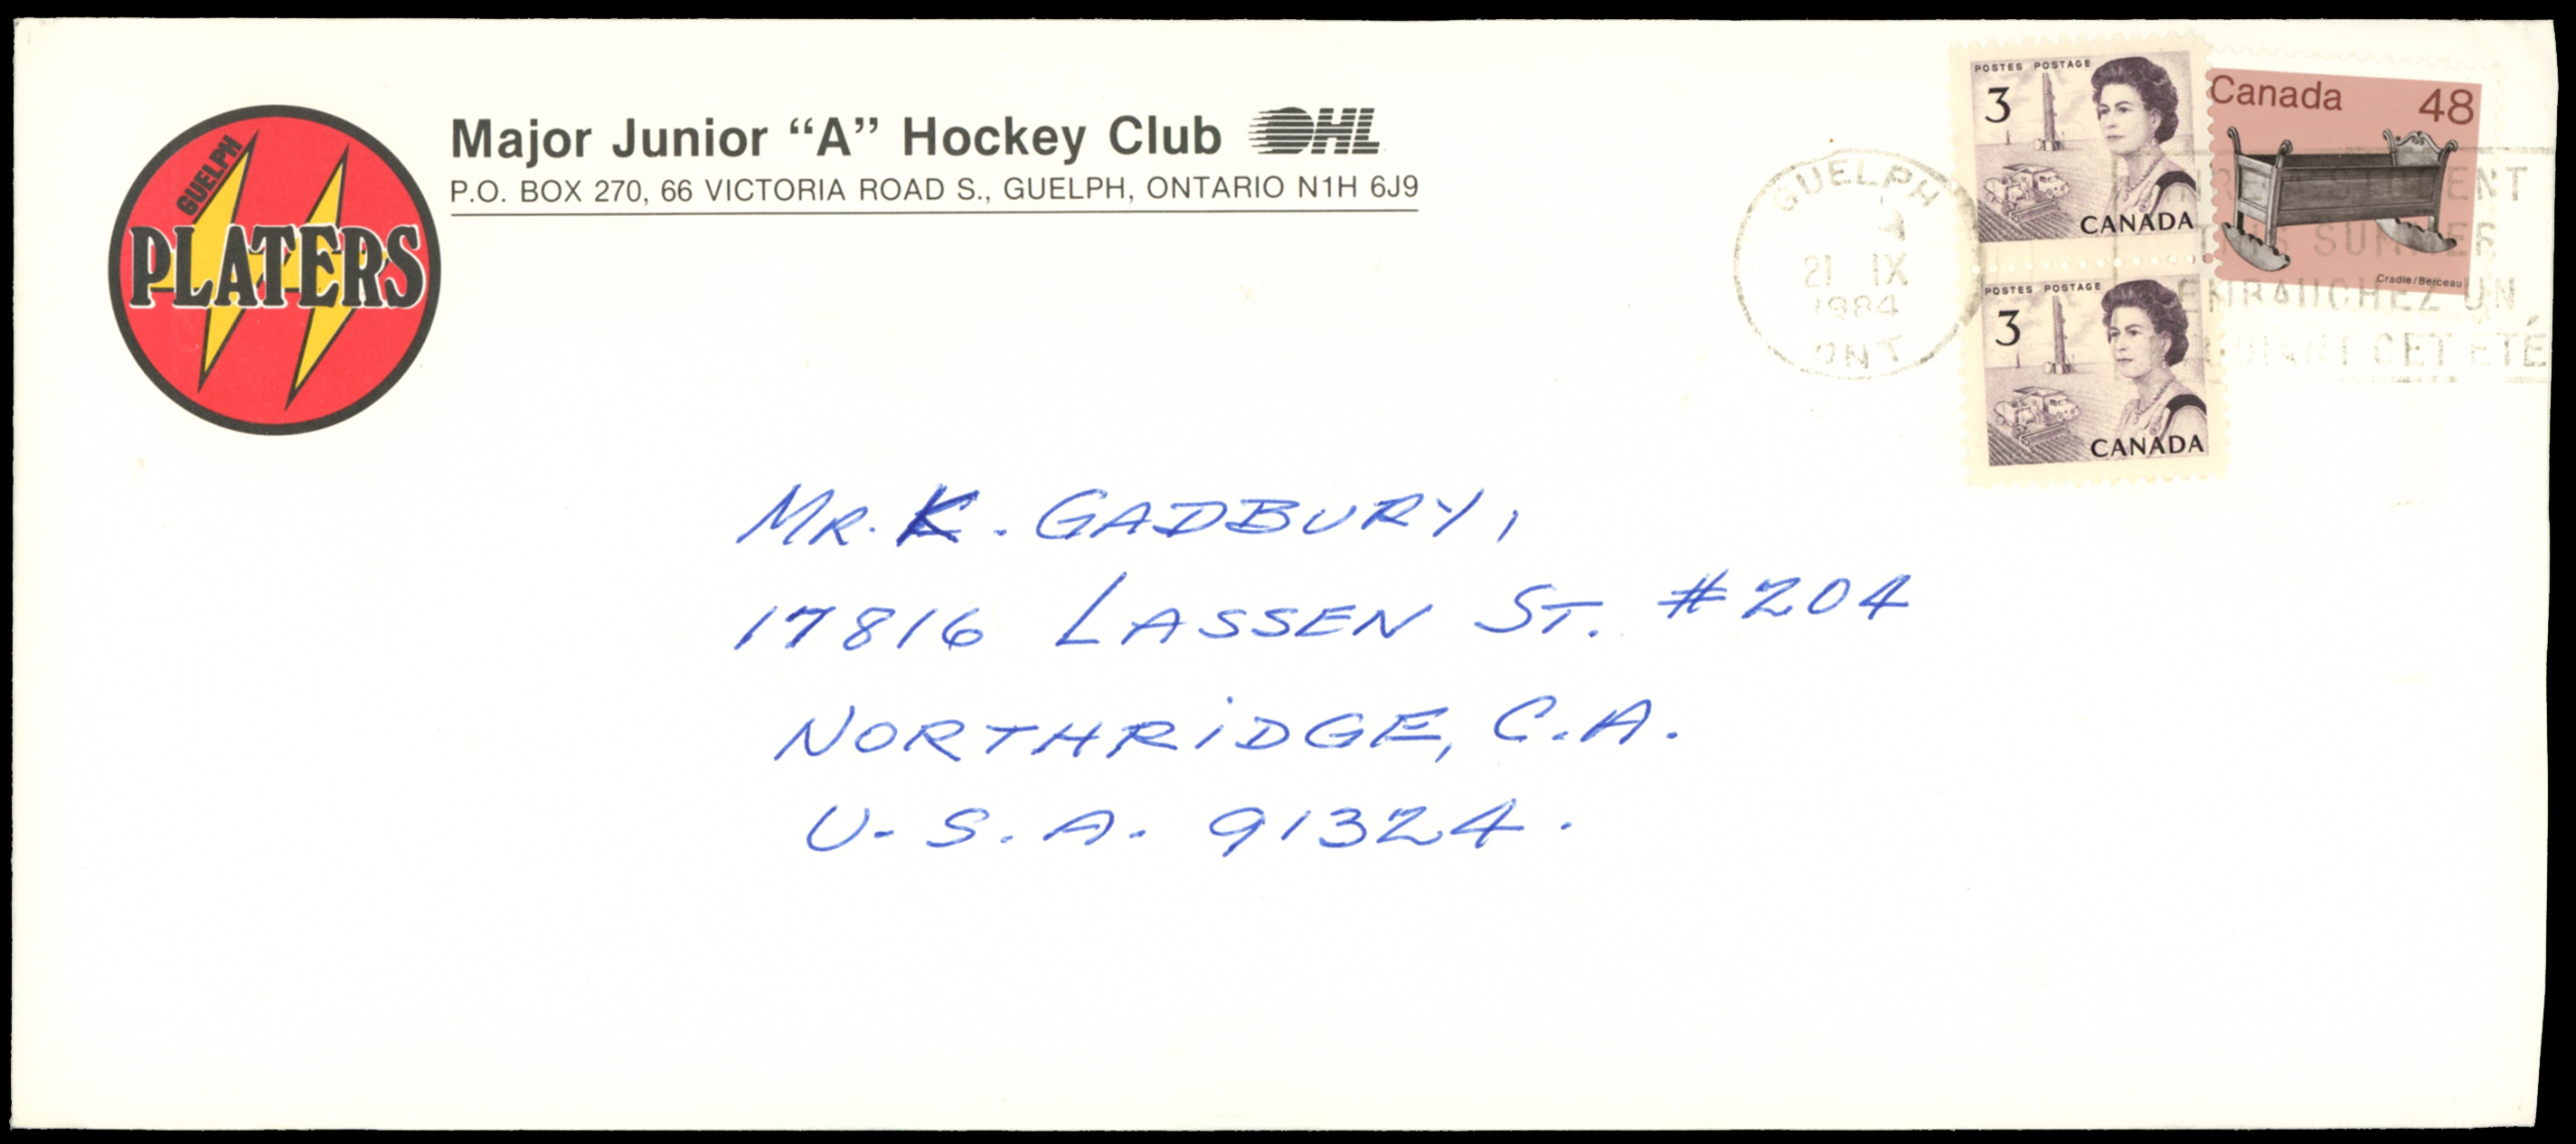 GUELPH
PLATERS
Major Junior “A” Hockey Club OHL
P.O. BOX 270, 66 VICTORIA ROAD S., GUELPH, ONTARIO N1H 6J9
POSTES POSTAGE
3
CANADA
POSTES POSTAGE
3
CANADA
Canada 48
Cradle/Berceau
GUELPH
21 IX
1984
ONT
SUMMER
EMBAUCHEZ UN
CET ÉTÉ
MR. K. GADBURY,
17816 LASSEN ST. #204
NORTHRiDGE, C.A.
U.S.A. 91324.